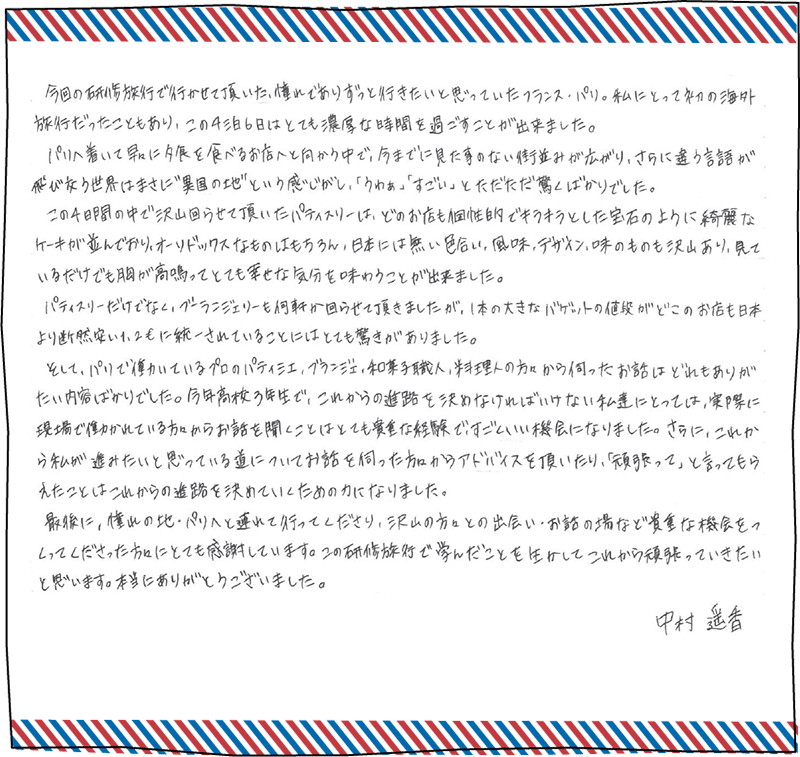 今回の研修旅行で行かせて頂いた、憧れでありずっと行きたいと思っていたフランス・パリ。私にとって初の海外
旅行だったこともあり、この4泊6日はとても濃厚な時間を過ごすことが出来ました。
パリへ着いて早々に夕食を食べるお店へと向かう中で、今までに見た事のない街並みが広がり、さらに違う言語が
飛び交う世界はまさに"異国の地"という感じがし、「うわぁ」「すごい」とただただ驚くばかりでした。
この4日間の中で沢山回らせて頂いたパティスリーは、どのお店も個性的でキラキラとした宝石のように綺麗な
ケーキが並んでおり、オーソドックスなものはもちろん、日本には無い色合い、風味、デザイン、味のものも沢山あり、見て
いるだけでも胸が高鳴ってとても幸せな気分を味わうことが出来ました。
パティスリーだけでなく、ブーランジェリーも何軒か回らせて頂きましたが、1本の大きなバゲットの値段がどこのお店も日本
より断然安い1、2€に統一されていることにはとても驚きがありました。
そして、パリで働いているプロのパティシエ、ブランジェ、和菓子職人、料理人の方々から伺ったお話はどれもありが
たい内容ばかりでした。今年高校3年生で、これからの進路を決めなければいけない私達にとっては、実際に
現場で働かれている方々からお話を聞くことはとても貴重な経験ですごくいい機会になりました。さらに、これか
ら私が進みたいと思っている道についてお話を伺った方々からアドバイスを頂いたり、「頑張って」と言ってもら
えたことはこれからの進路を決めていくための力になりました。
最後に、憧れの地・パリへと連れて行ってくださり、沢山の方々との出会い・お話の場など貴重な機会をつ
くってくださった方々にとても感謝しています。この研修旅行で学んだことを生かしてこれから頑張っていきたい
と思います。本当にありがとうございました。
中村 遥香